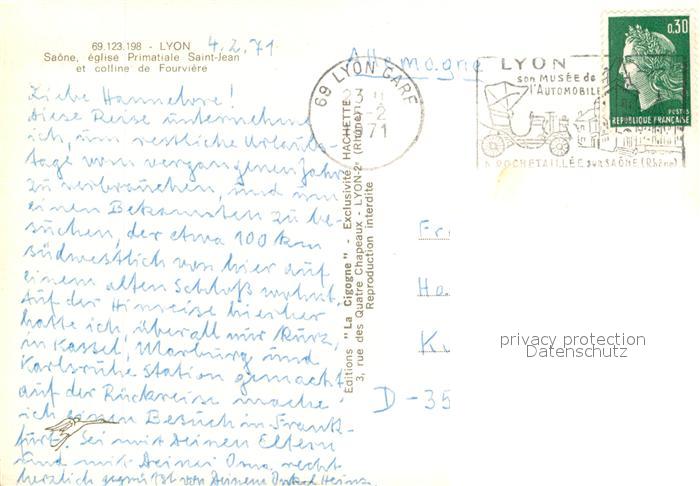 69.123.198 - LYON
Saône, église Primatiale Saint-Jean
et colline de Fourvière
4.2.71
Liebe Hannelore!
Diese Reise unternehme
ich, um restliche Urlaubs-
tage vom vergangenen Jahr
zu verbrauchen, und um
einen Bekannten zu be-
suchen, der etwa 100 km
südwestlich von hier auf
einem alten Schloß wohnt.
Auf der Hinreise hierher
hatte ich, überall nur kurz,
in Kassel, Marburg und
Karlsruhe Station gemacht
auf der Rückreise mache
ich einen Besuch in Frank-
furt. Sei mit Deinen Eltern
und mit Deiner Oma recht
herzlich gegrüßt von Deinem Onkel Heinz
Editions "La Cigogne" - Exclusivité HACHETTE
3, rue des Quatre Chapeaux - LYON-2e (Rhône)
Reproduction interdite
Allemagne
69 LYON GARE
-2
1971
LYON
son MUSÉE de
l'AUTOMOBILE
A ROCHETAILLÉE sur SAÔNE (Rhône)
0,30
POSTES
REPUBLIQUE FRANÇAISE
Fr
Ha
K
D-35
privacy protection
Datenschutz